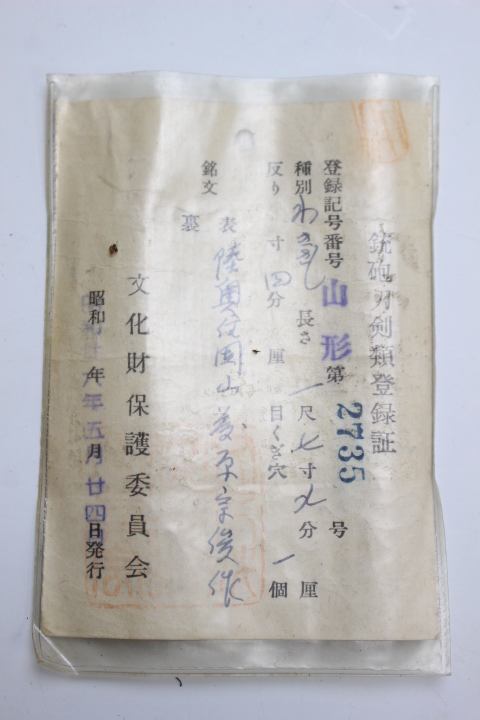 銃砲刀剣類登録証
登録記号番号 山形 第 2735 号
種別 わきざし 長さ 一尺七寸 分 厘
反り 寸四分 厘 目くぎ穴 一個
銘文 表 陸奥 藤原宗俊作
裏
文化財保護委員会
昭和 年五月廿四日発行